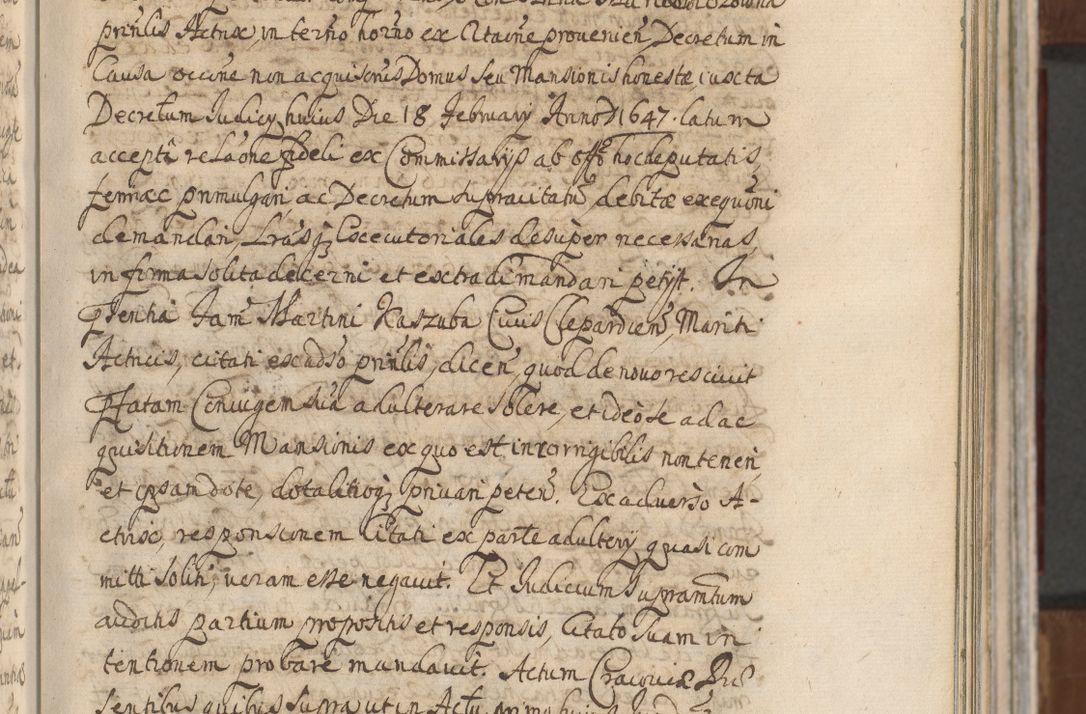 prinlis Actrix, in terno horno ex Citaone provenien, Decretum in
Causa occne non acquisitus Domus seu Mansionis honestæ, iuxta
Decretum Iudicy huius Die 18 February Anno D 1647. latum
accepta relaone fideli ex Commissarys ab offo hoc deputatis,
ferri ac promulgari, ac Decretum supracitatu, debitæ exequoni
demandari, Lras q Executoriales desuper necessarias,
in forma solita decerni et extradi mandari petyt. In
Pntia Fam Martini Kaszuba Civis Clepardien, Mariti
Actricis, citati ex adso prinlis, dicen, quod de novo rescivit
Pfatam Coniugem sua adulterare solere, et ideo se ad ac
quisitionem Mansionis ex quo est incorrigibilis non teneri,
et ipsam dote, dotalitioq privari peten. Ex adverso A-
ctrix, responsionem Citati ex parte adultery quasi com
mitti soliti, veram esse negavit. Et Iudicium supramtum
auditis partium propositis et responsis, Citato suam in
tentionem probare mandavit. Actum Cracoviæ Præ
sentibus quibus supra ut in Actu primo huius